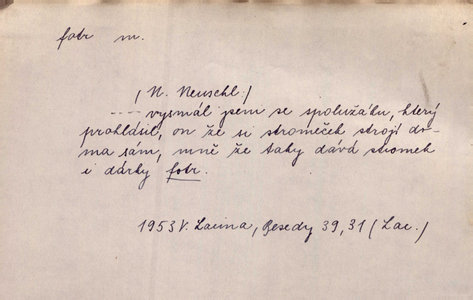 fotr m.
(N. Neuschl:)
---- vysmál jsem se spolužáku, který
prohlásil, on že si stromeček strojí do-
ma sám, mně že taky dává stromek
i dárky fotr.
1953 V. Lacina, Besedy 39, 31 (Lac.)